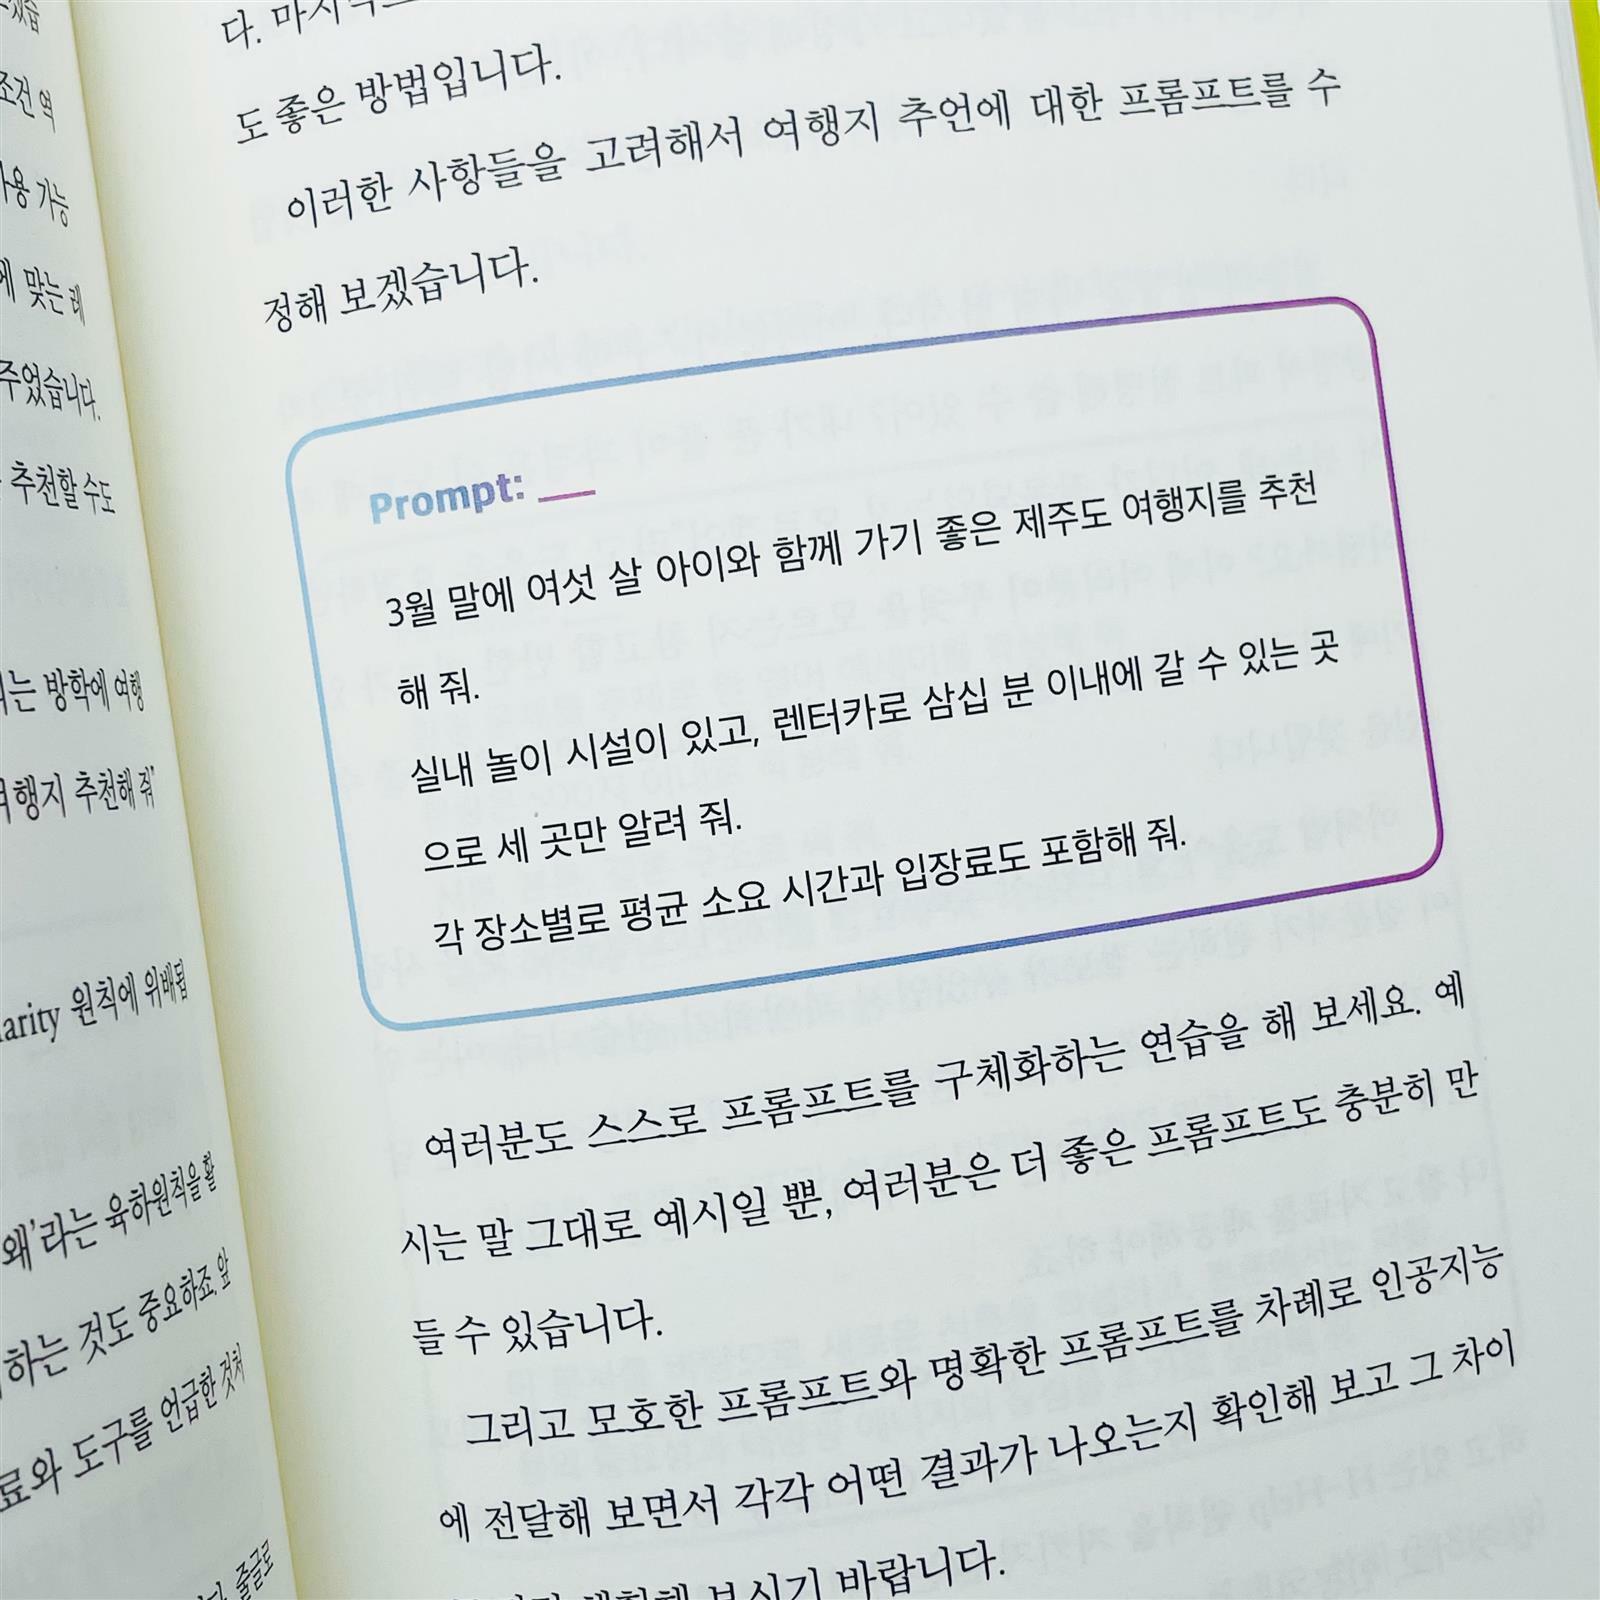 조건 역
사용 가능
에 맞는 레
주었습니다.
추천할 수도
는 방학에 여행
여행지 추천해 줘"
larity 원칙에 위배됩
왜'라는 육하원칙을 활
하는 것도 중요하죠. 앞
료와 도구를 언급한 것처
줄글로
도 좋은 방법입니다.
이러한 사항들을 고려해서 여행지 추언에 대한 프롬프트를 수
정해 보겠습니다.
Prompt: __
3월 말에 여섯 살 아이와 함께 가기 좋은 제주도 여행지를 추천
해 줘.
실내 놀이 시설이 있고, 렌터카로 삼십 분 이내에 갈 수 있는 곳
으로 세 곳만 알려 줘.
각 장소별로 평균 소요 시간과 입장료도 포함해 줘.
여러분도 스스로 프롬프트를 구체화하는 연습을 해 보세요. 예
시는 말 그대로 예시일 뿐, 여러분은 더 좋은 프롬프트도 충분히 만
들 수 있습니다.
그리고 모호한 프롬프트와 명확한 프롬프트를 차례로 인공지능
에 전달해 보면서 각각 어떤 결과가 나오는지 확인해 보고 그 차이
보시기 바랍니다.